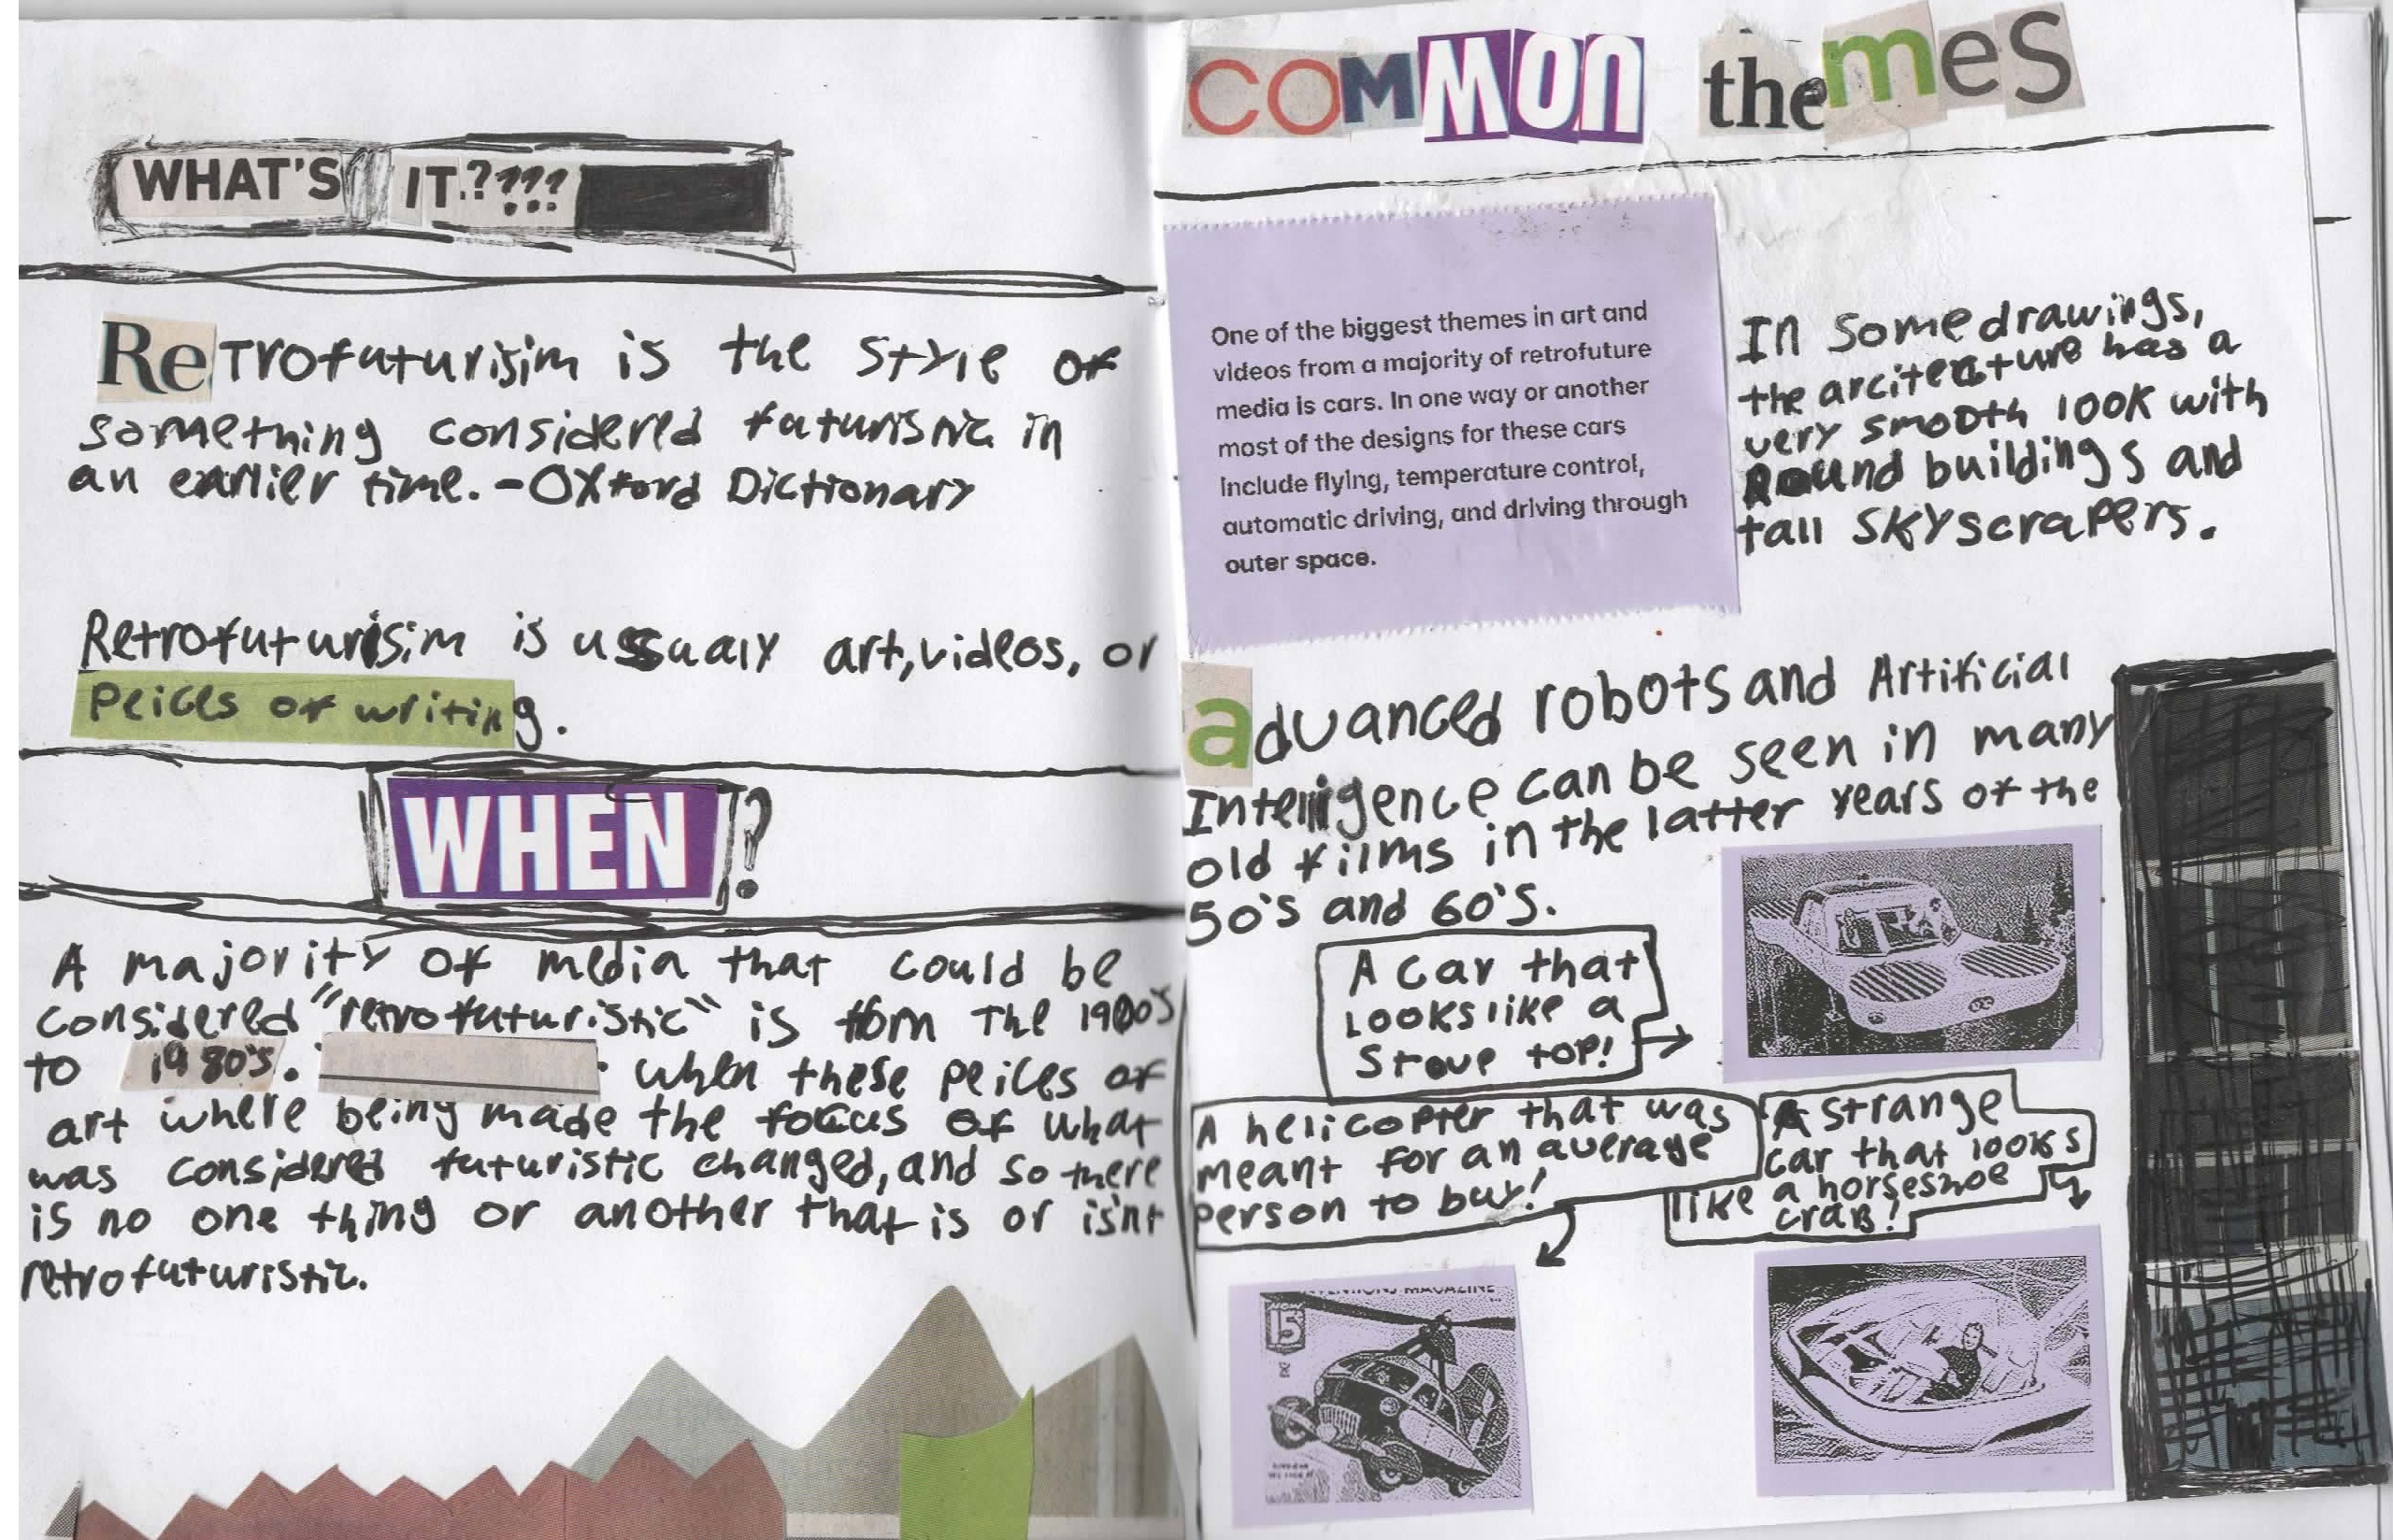 WHAT'S IT.????
Retrofuturisim is the style of
something considered futuristic in
an earlier time. - Oxford Dictionary
Retrofuturisim is ussualy art, videos, or
peices of writing.
WHEN?
A majority of media that could be
considered "retrofuturistic" is from the 1900's
to 1980's.
when these peices of
art where being made the focus of what
was considered futuristic changed, and so there
is no one thing or another that is or isn't
retrofuturistic.
COMMON theMeS
One of the biggest themes in art and
videos from a majority of retrofuture
media is cars. In one way or another
most of the designs for these cars
include flying, temperature control,
automatic driving, and driving through
outer space.
In some drawings,
the arcitecture has a
very smooth look with
Round buildings and
tall skyscrapers.
advanced robots and Artificial
Intelligence can be seen in many
old films in the latter years of the
50's and 60's.
A car that
looks like a
stove top!
A helicopter that was
meant for an average
person to buy!
A strange
car that looks
like a horseshoe
crab!
MAGAZINE
NOW
15